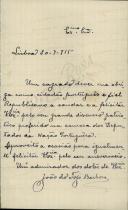 Exmo Sr.
Lisboa 20-7-915
Um sagrado dever me obriga como cidadão portuguez e fiel
Republicano a saudar e a felicitar
Vexa pelo seu grande discurso patriotico proferido na camara dos Deputados da Nação Portugueza.
Aproveito a occasião para igualmente felicitar Vexa pelo seu anniversario.
Um admirador dos dotes de Vexa
João da Veiga Barbosa